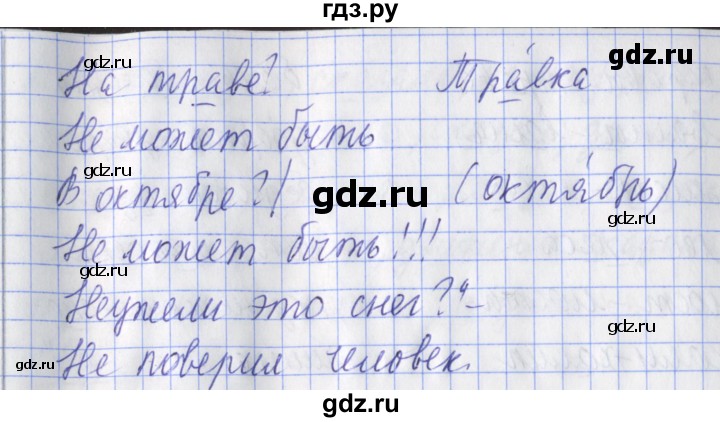 гдз.ру
На траве? Тра́вка
gdz.ru
gdz.ru
Не может быть
gdz.ru
В октябре?! (октя́брь)
gdz.ru
Не может быть!!!
gdz.ru
Неужели это снег?" –
gdz.ru
Не поверил человек.
gdz.ru
gdz.ru